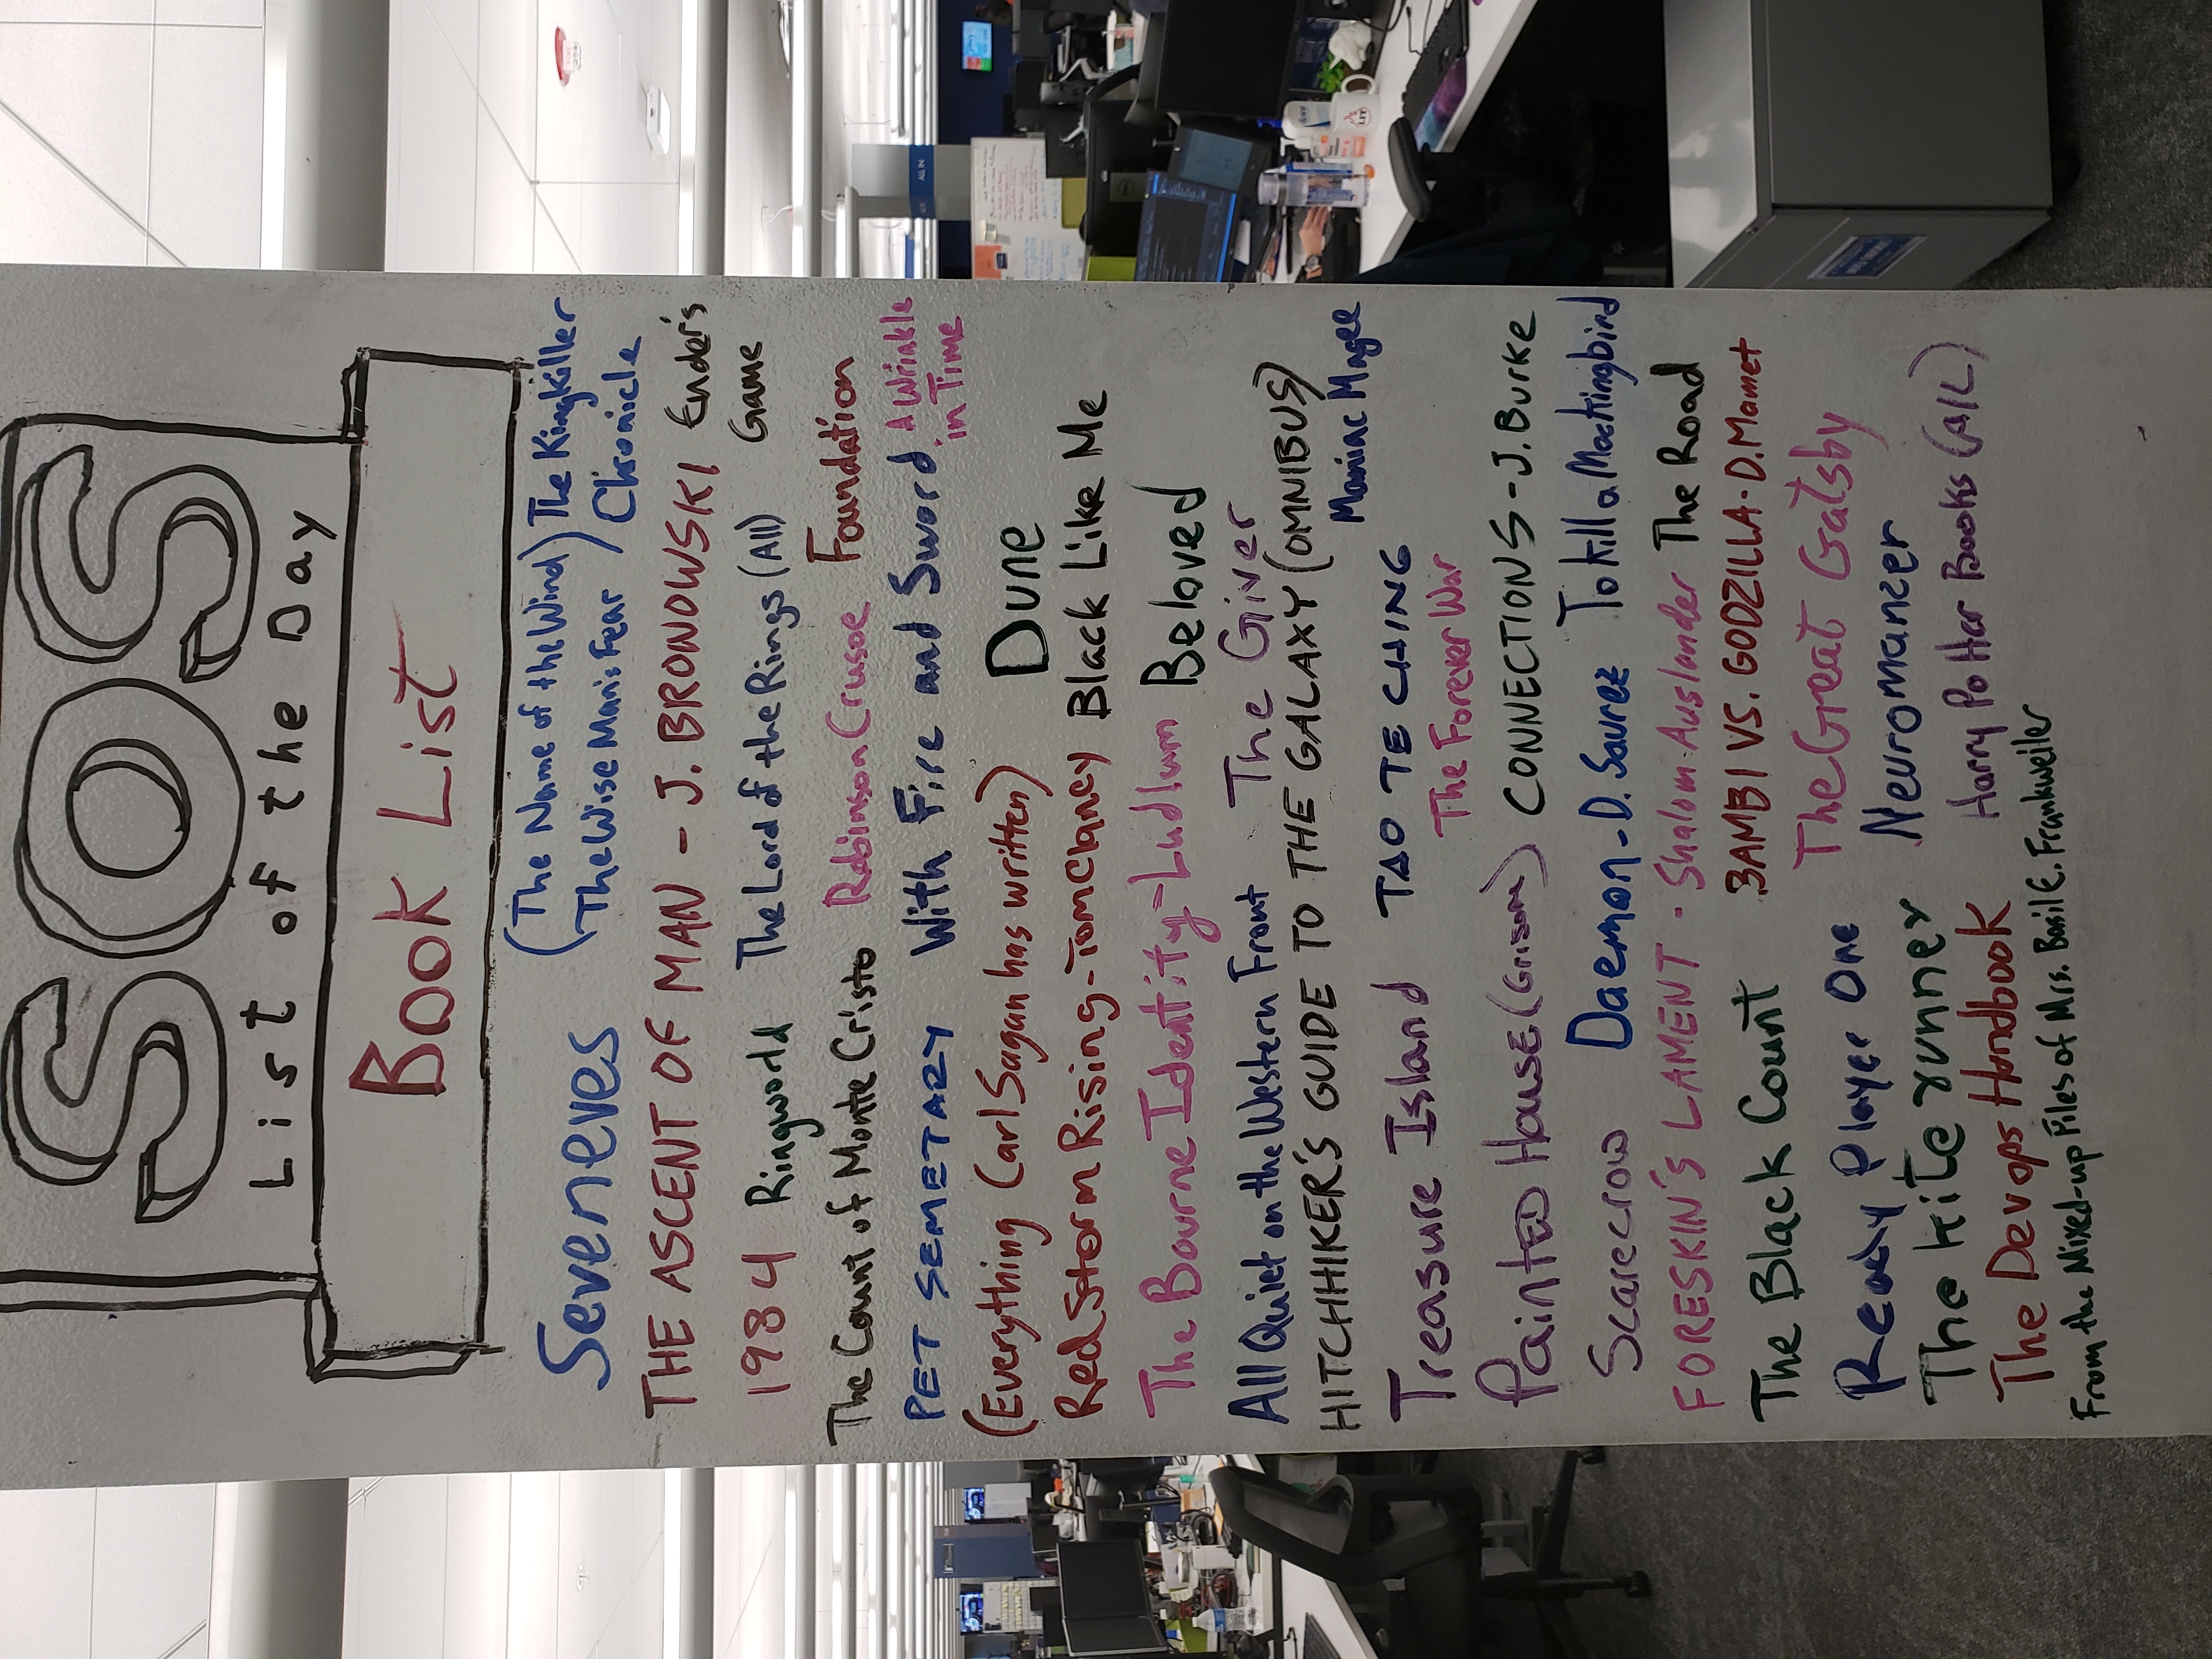 SOS
List of the Day
Book List
Seveneves (The Name of the Wind) The Kingkiller
The Wise Man's Fear Chronicle
THE ASCENT OF MAN - J. BRONOWSKI Ender's
Game
1984 Ringworld The Lord of the Rings (All)
The Count of Monte Cristo Robinson Crusoe Foundation
PET SEMETARY With Fire and Sword A Wrinkle
in Time
(Everything Carl Sagan has written) Dune
Red Storm Rising - Tom Clancy Black Like Me
The Bourne Identity - Ludlum Beloved
All Quiet on the Western Front The Giver
HITCHHIKER'S GUIDE TO THE GALAXY (OMNIBUS)
Maniac Magee
Treasure Island TAO TE CHING
The Forever War
Painted House (Grisom) CONNECTIONS - J. Burke
Scarecrow Daemon - D. Saurez To kill a Mockingbird
FORESKIN'S LAMENT - Shalom Auslander The Road
The Black Count BAMBI VS. GODZILLA - D. Mamet
Ready Player One The Great Gatsby
The kite runner Neuromanzer
The Devops Handbook Harry Potter Books (ALL)
From the Mixed-up Files of Mrs. Basil E. Frankweiler
ALL IN
LIT